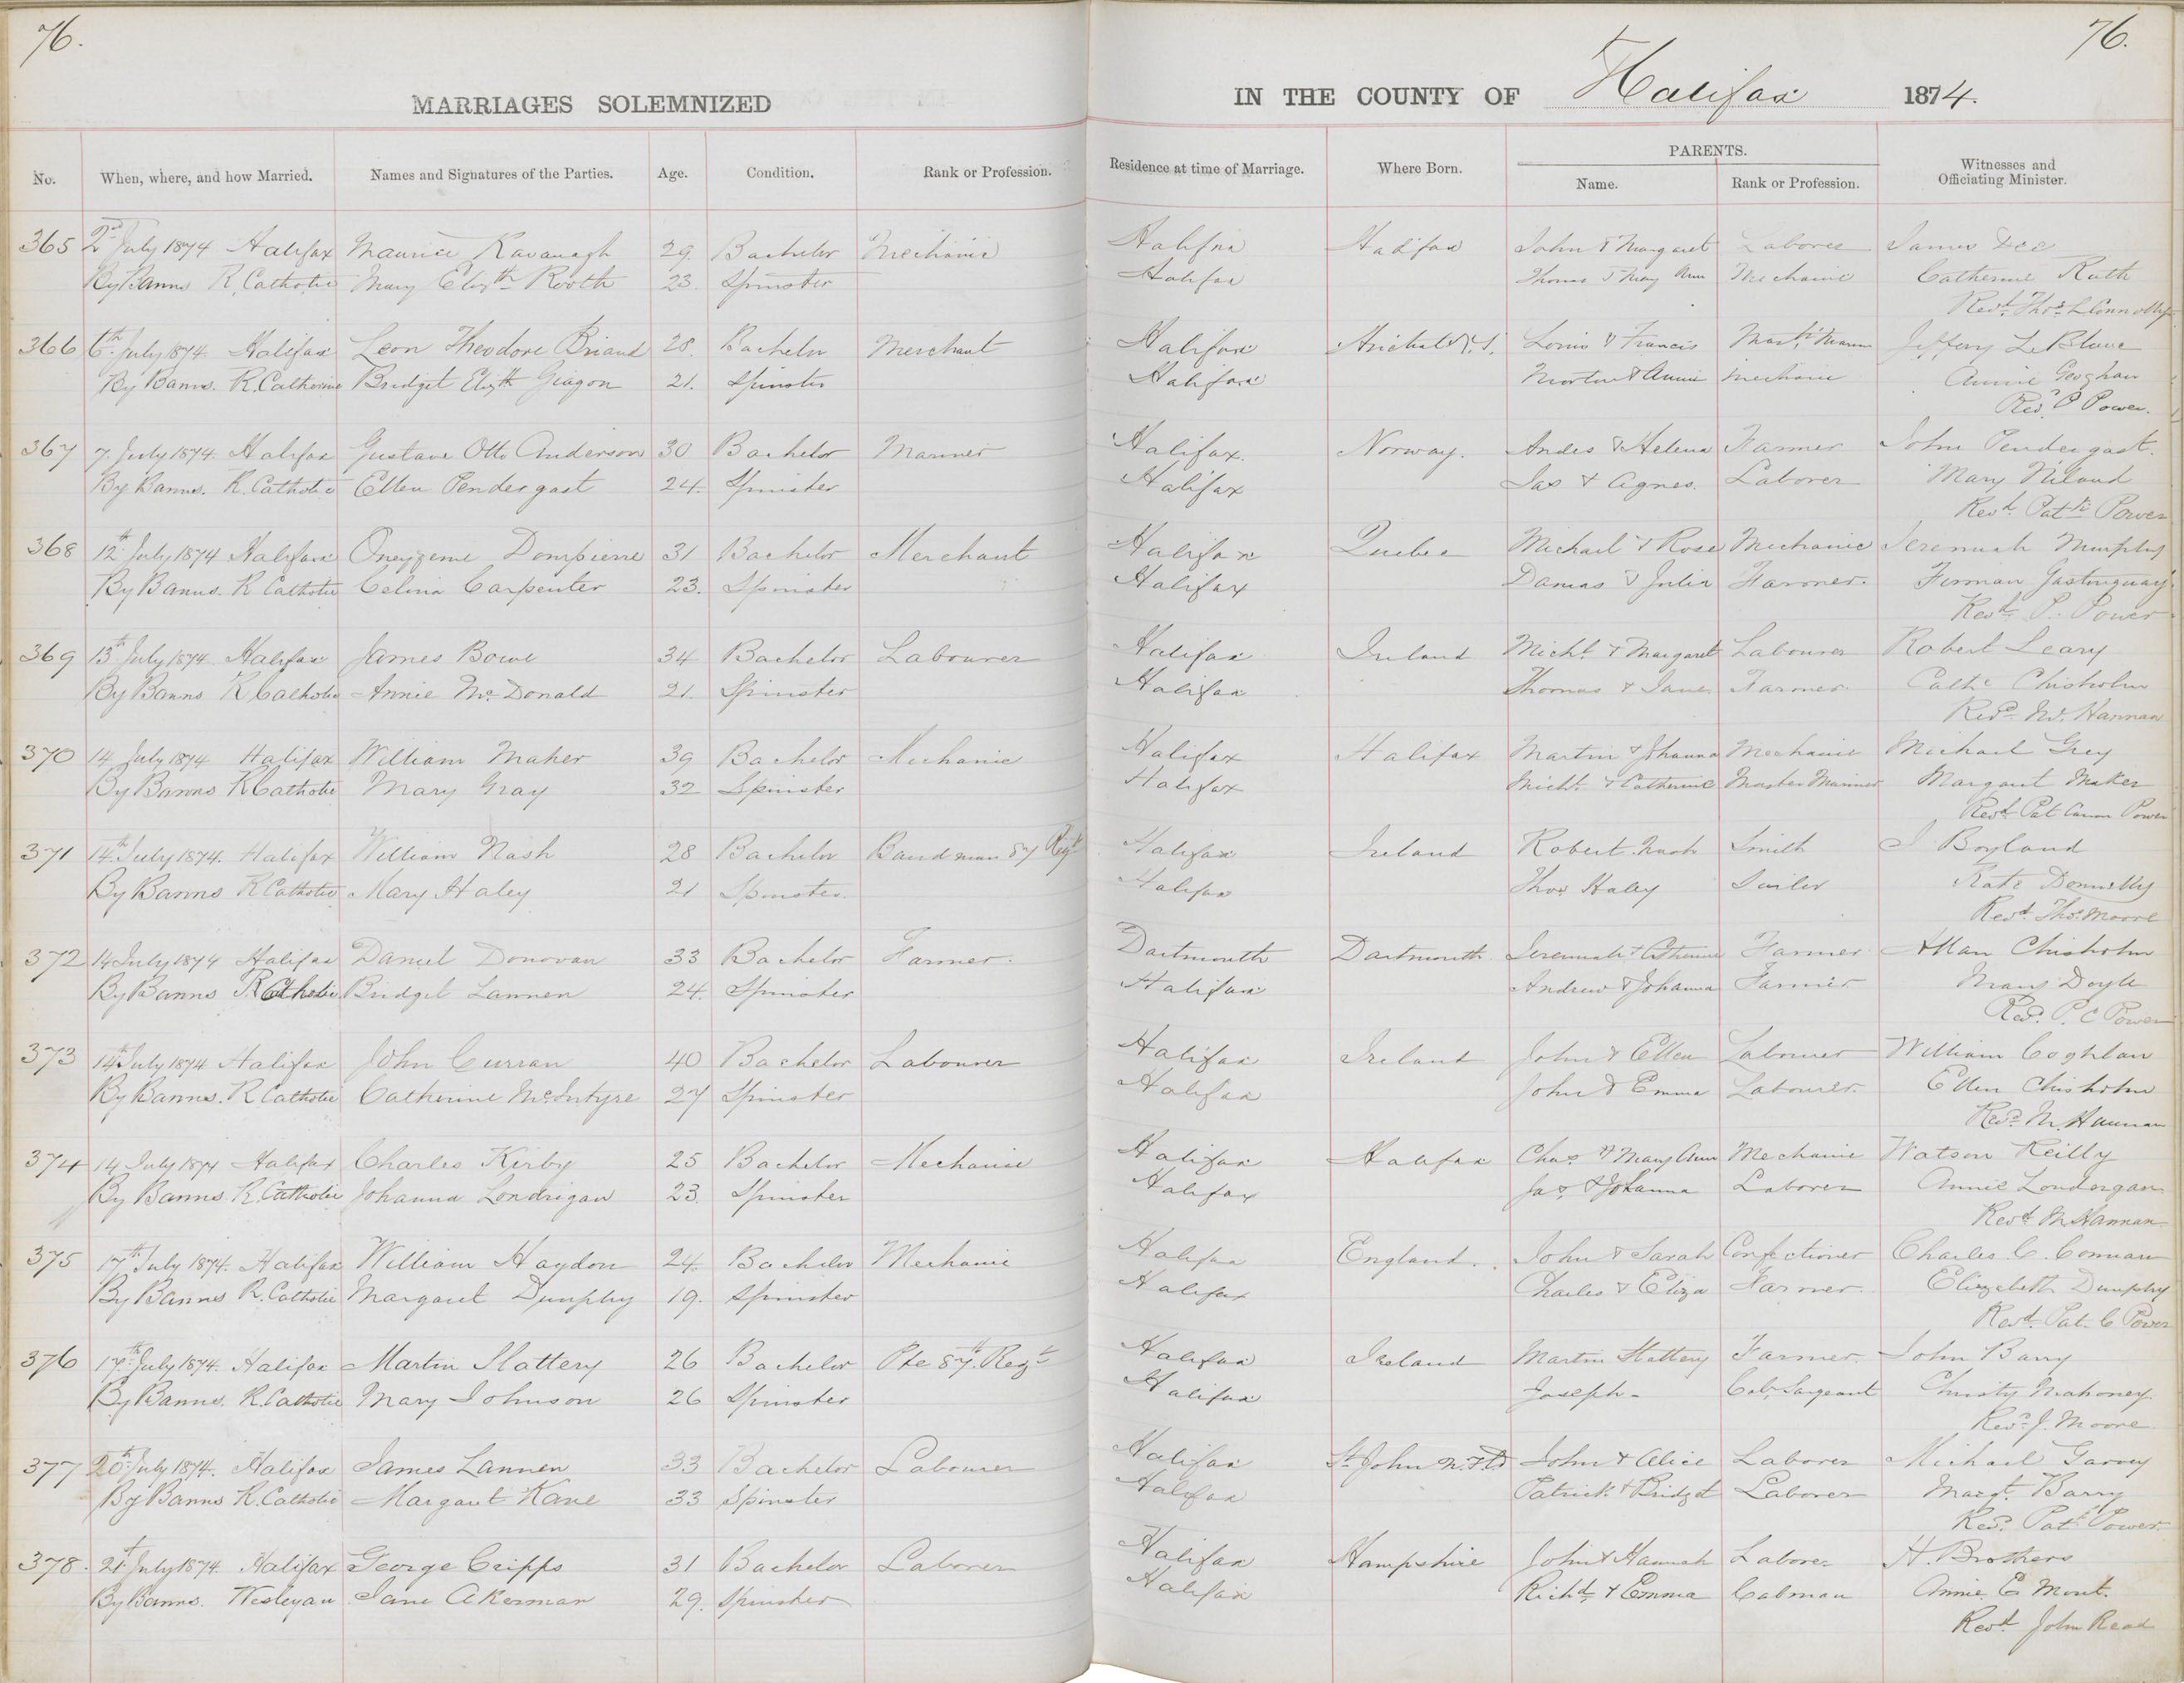 76.
76.
MARRIAGES SOLEMNIZED
IN THE COUNTY OF Halifax 1874.
No. When, where, and how Married. Names and Signatures of the Parties. Age. Condition. Rank or Profession. Residence at time of Marriage. Where Born. PARENTS. Name. Rank or Profession. Witnesses and Officiating Minister.
365 2nd July 1874 Halifax Maurice Kavanagh 29. Bachelor Mechanic Halifax Halifax John & Margaret Laborer James
By Banns R. Catholic Mary Elizth Rooth 23 Spinster Halifax Thomas & Mary Ann Mechanic Catherine Ruth
Revd Thos L Connolly
366 6th July 1874. Halifax Leon Theodore Briand 28. Bachelor Merchant Halifax Arichat N.S. Louis & Francis Mastr Marin Jeffery LeBlanc
By Banns. R. Catholic Bridget Elizth 21. Spinster Halifax & Annie Mechanic Annie Geoghan
Revd P Power.
367 7. July 1874. Halifax Gustave Otto Anderson 30 Bachelor Mariner Halifax. Norway. Andes & Helena Farmer John Pendergast.
By Banns. R. Catholic Ellen Pendergast 24. Spinster Halifax Jas & Agnes. Laborer Mary Niland
Revd Patk Power
368 12th July 1874 Halifax Dompierre 31 Bachelor Merchant Halifax Quebec Michael & Rose Mechanic Jeremiah Murphy
By Banns. R Catholic Celina Carpenter 23. Spinster Halifax Damas & Julia Farmer. Firman Gastonguay
Revd P. Power
369 13th July 1874 Halifax James Bowe 34 Bachelor Labourer Halifax Ireland Michl & Margaret Labourer Robert Leary
By Banns R Catholic Annie McDonald 21. Spinster Halifax Thomas & Jane Farmer Cathe Chisholm
Revd M. Hannan
370 14 July 1874 Halifax William Maher 39 Bachelor Mechanic Halifax Halifax Martin & Johanna Mechanic Michael Grey
By Banns R Catholic Mary Gray 32 Spinster Halifax Michl & Catherine Master Mariner Margaret Maher
Revd Pat Canon Power
371 14th July 1874. Halifax William Nash 28 Bachelor Bandman 87 Regt Halifax Ireland Robert Nash Smith J Boyland
By Banns R Catholic Mary Haley 21 Spinster. Halifax Thos Haley Kate Donnelly
Revd Thos Moore
372 14 July 1874 Halifax Daniel Donovan 33 Bachelor Farmer. Dartmouth Dartmouth Jeremiah & Catherine Farmer Allan Chisholm
By Banns R Catholic Bridget Lannen 24. Spinster Halifax Andrew & Johanna Farmer Mary Doyle
Revd P. C Power
373 14th July 1874 Halifax John Curran 40 Bachelor Labourer Halifax Ireland John & Ellen Labourer William Coghlan
By Banns. R Catholic Catherine McIntyre 27 Spinster Halifax John & Emma Labourer. Ellen Chisholm
Revd M. Hannan
374 14 July 1874 Halifax Charles Kirby 25 Bachelor Mechanic Halifax Halifax Chas & Mary Ann Mechanic Watson Reilly
By Banns. R. Catholic Johanna Londrigan 23. Spinster Halifax Jas & Johanna Laborer Annie Londergan
Revd M Hannan
375 17th July 1874. Halifax William Haydon 24. Bachelor Mechanic Halifax England. John & Sarah Confectioner Charles C.
By Banns R. Catholic Margaret Dunphy 19. Spinster Halifax Charles & Eliza Farmer. Elizabeth Dunphy
Revd Pat. C Power
376 17th July 1874. Halifax Martin Slattery 26 Bachelor Pte 87. Regt Halifax Ireland Martin Slattery Farmer. John Barry
By Banns. R. Catholic Mary Johnson 26 Spinster Halifax Joseph - Colr Sargeant Christy Mahoney
Revd J. Moore
377 20th July 1874. Halifax James Lannen 33 Bachelor Labourer Halifax St John N.F.D. John & Alice Laborer Michael Garvey
By Banns R. Catholic Margaret Kane 33 Spinster Halifax Patrick & Bridget Laborer Margt. Barry
Revd Patk Power.
378. 21st July 1874. Halifax George Cripps 31 Bachelor Laborer Halifax Hampshire John & Hannah Laborer H. Brothers
By Banns. Wesleyan Jane Akerman 29. Spinster Halifax Richd & Emma Cabman Annie E Mont.
Revd John Read